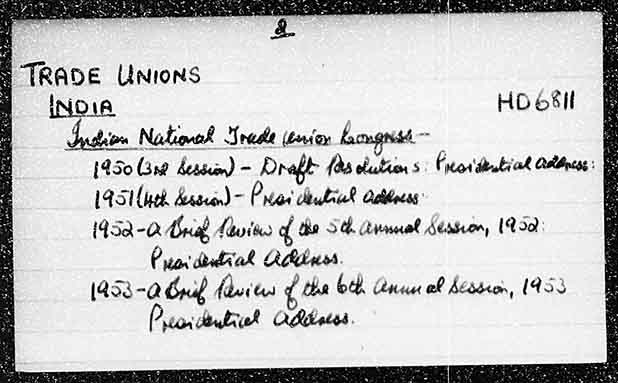 2
TRADE UNIONS
INDIA
HD6811
Indian National Trade Union Congress—
1950 (3rd Session) - Draft Resolutions: Presidential address:
1951 (4th Session) - Presidential address:
1952 - A Brief Review of the 5th annual Session, 1952:
Presidential address.
1953 - A Brief Review of the 6th annual Session, 1953
Presidential address.